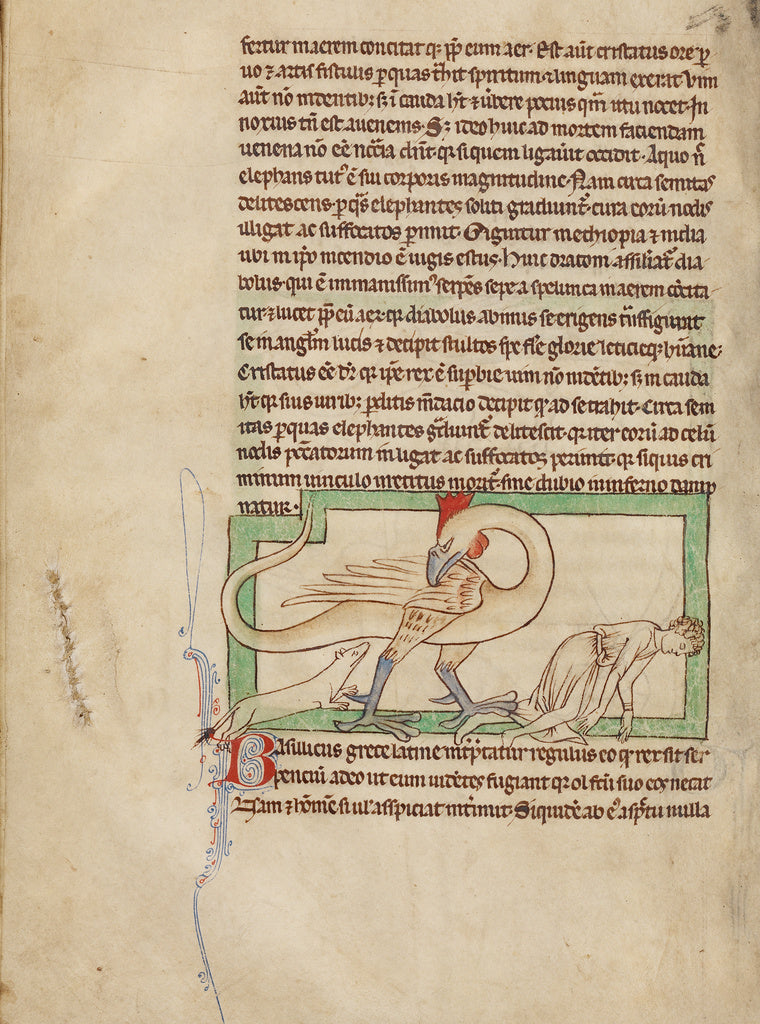 fertur maerem concitat q᷑ ꝓp̄ eum aer. Est aūt cristatus ore ꝑ
uo ⁊ artis fistulis ꝑ quas t̄hit spiritum ⁊ linguam exerat Vim
aūt nō in dentib; sꝫ ī cauda h̄t ⁊ ũbere pocius q̄m ictu nocet. In
noxius tn̄ est a uenenis. Sꝫ ideo huic ad mortem faciendam
uenena nō eē nccīa dn̄t. q᷑ si quem ligauit occidit. A quo n̄
elephans tut᾽ ē sui corporis magnitudine. Nam circa semitas
delitescens. ꝑ q̄s elephantes soliti gradiunt᷑. crura eoꝝ nodis
illigat ac suffocatos ꝑimit. Gignitur in ethiopia ⁊ india
ubi in ip̄o incendio ē iugis estus. Huic draconi assiliat᷑ dia
bolus. qui ē immanissim᾽ serpēs sepe a spelunca in aerem cōcita
tur. ⁊ lucet ꝓp̄ eū aer. q᷑ diabolus ab imis se erigens t̄nsfigurat
se in angl̄m lucis ⁊ decipit stultos spe fl̄se glorie leticieqꝫ hūane.
Cristatus eē dr̄ q᷑ ip̄e rex ē suꝑbie uim nō in dētib; sꝫ in cauda
h̄t q᷑ suis uirib; ꝑditis m̄dacio decipit q᷑ ad se trahit. Circa sem
itas ꝑ quas elephantes gͣdiunt᷑ delitescit. q᷑ iter eoꝝ ad celū
nodis peccatorum inligat ac suffocatos perimit. q᷑ siquis cri
minum uinculo irretitus morit᷑. sine dubio in inferno damp
natur.
Basiliscus grece latine int̄p̄tatur regulus eo q᷑ rex sit ser
penciū adeo ut eum uidētes fugiant q᷑ olf̄tū suo eos necat
Nam ⁊ hōinē si uł aspiciat int̄imit. Siquidē ab e᾽ aspc̄tu nulla